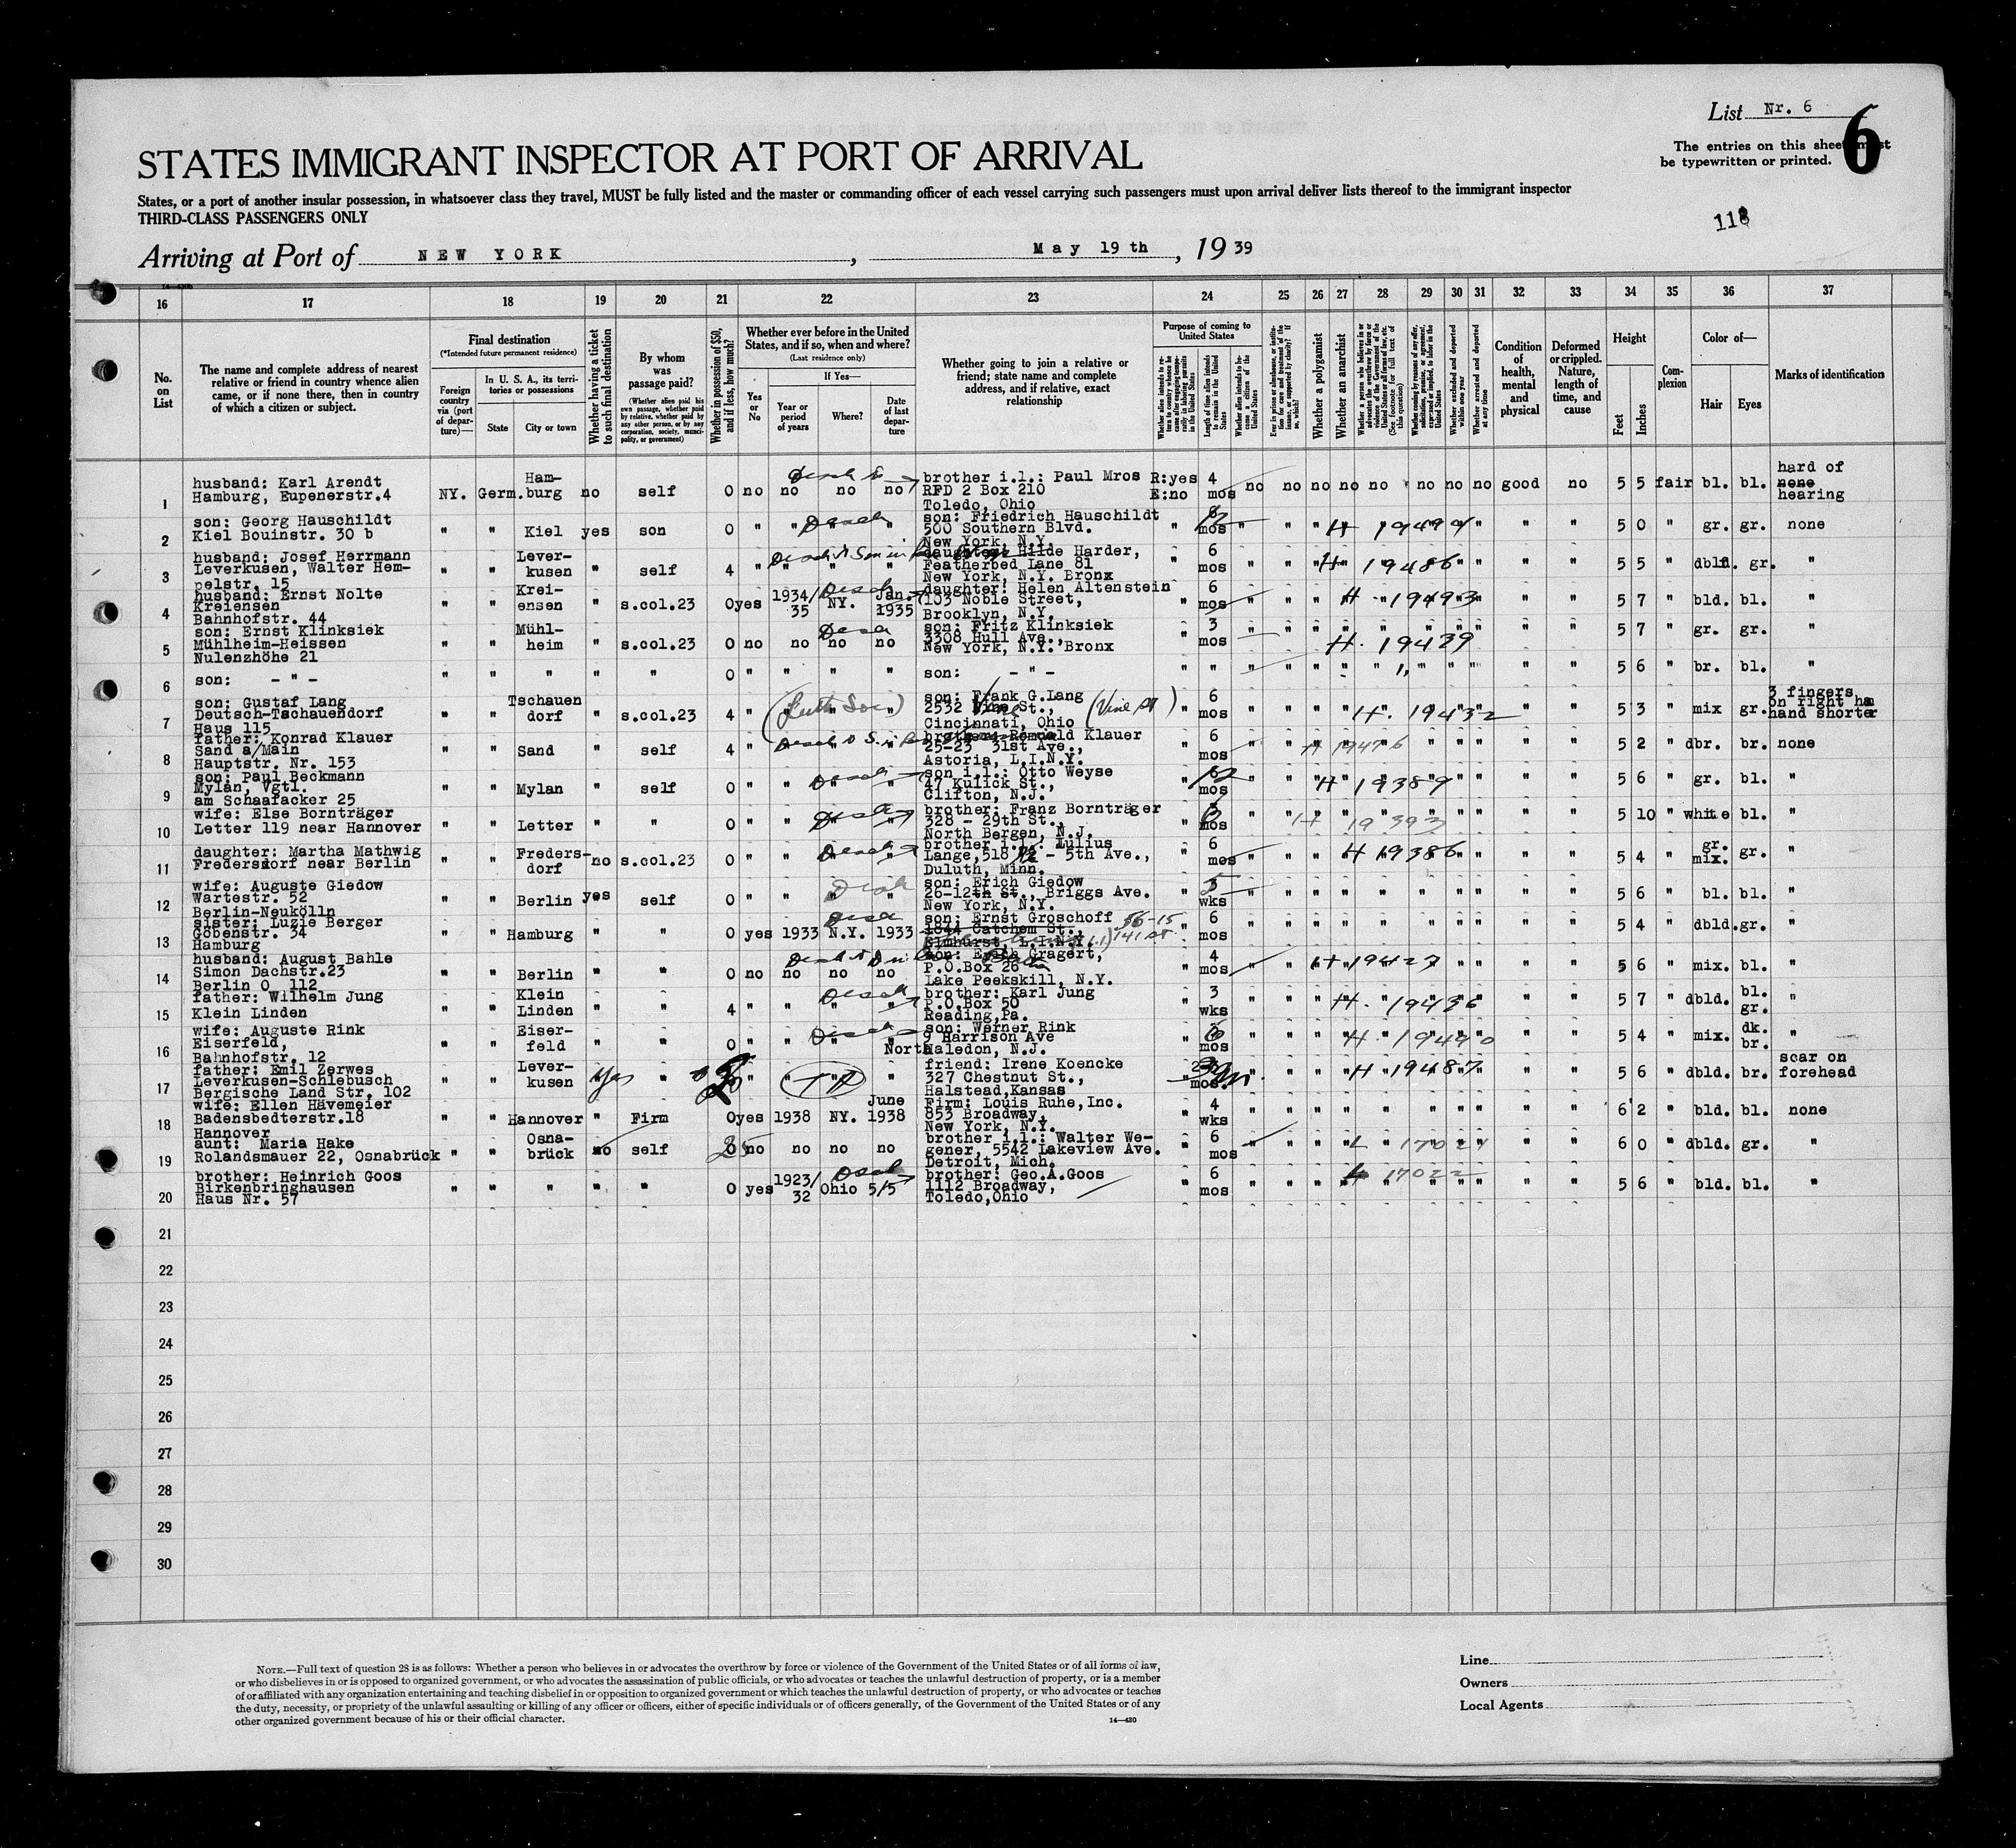 List Nr. 6
6
The entries on this sheet must
be typewritten or printed.
STATES IMMIGRANT INSPECTOR AT PORT OF ARRIVAL
States, or a port of another insular possession, in whatsoever class they travel, MUST be fully listed and the master or commanding officer of each vessel carrying such passengers must upon arrival deliver lists thereof to the immigrant inspector
THIRD-CLASS PASSENGERS ONLY
118
Arriving at Port of NEW YORK, May 19th, 1939
16 17 18 19 20 21 22 23 24 25 26 27 28 29 30 31 32 33 34 35 36 37
No. on List
The name and complete address of nearest relative or friend in country whence alien came, or if none there, then in country of which a citizen or subject.
Final destination
(*Intended future permanent residence)
Foreign country via (port of departure)—
In U. S. A., its territories or possessions
State
City or town
Whether having a ticket to such final destination
By whom was passage paid?
(Whether alien paid his own passage, whether paid by relative, whether paid by any other person, or by any corporation, society, municipality, or government)
Whether in possession of $50, and if less, how much?
Whether ever before in the United States, and if so, when and where?
(Last residence only)
Yes or No
If Yes—
Year or period of years
Where?
Date of last departure
Whether going to join a relative or friend; state name and complete address, and if relative, exact relationship
Purpose of coming to United States
Whether alien intends to return to country whence he came after engaging temporarily in laboring pursuits in the United States
Length of time alien intends to remain in the United States
Whether alien intends to become a citizen of the United States
Ever in prison or almshouse, or institution for care and treatment of the insane, or supported by charity? If so, which?
Whether a polygamist
Whether an anarchist
Whether a person who believes in or advocates the overthrow by force or violence of the Government of the United States or all forms of law, etc. (See footnote for full text of this question)
Whether coming by reason of any offer, solicitation, promise, or agreement, expressed or implied, to labor in the United States
Whether excluded and deported within one year
Whether arrested and deported at any time
Condition of health, mental and physical
Deformed or crippled. Nature, length of time, and cause
Height
Feet
Inches
Complexion
Color of—
Hair
Eyes
Marks of identification
1 husband: Karl Arendt
Hamburg, Eupenerstr.4 NY. Germ. Ham-
burg no self 0 no no no no brother i.l.: Paul Mros
RFD 2 Box 210
Toledo, Ohio R:yes
E:no 4
mos no no no no no no no no good no 5 5 fair bl. bl. hard of
none
hearing
2 son: Georg Hauschildt
Kiel Bouinstr. 30 b " " Kiel yes son 0 " " " son: Friedrich Hauschildt
500 Southern Blvd.
New York, N.Y. " mos " " " H 19494 " " 5 0 " gr. gr. none
3 husband: Josef Herrmann
Leverkusen, Walter Hem-
pelstr. 15 " " Lever-
kusen " self 4 " " " " daughter: Hilde Harder,
Featherbed Lane 81
New York, N.Y. Bronx " 6
mos " " " H 19486 " " " " 5 5 " dbld. gr. "
4 husband: Ernst Nolte
Kreiensen
Bahnhofstr. 44 " " Krei-
ensen " s.col.23 0 yes 1934/
35 NY. Jan.
1935 daughter: Helen Altenstein
103 Noble Street,
Brooklyn, N.Y. " 6
mos " " " H 19493 " " 5 7 " bld. bl. "
5 son: Ernst Klinksiek
Mühlheim-Heissen
Nulenzhöhe 21 " " Mühl-
heim " s.col.23 0 no no no no son: Fritz Klinksiek
3308 Hull Ave.,
New York, N.Y. Bronx " 3
mos " " " H. 19439 " " 5 7 " gr. gr. "
6 son: - " - " " " " " 0 " " " " son: - " - " " " " " " " " " " " 5 6 " br. bl. "
7 son: Gustaf Lang
Deutsch-Tschauendorf
Haus 115 " " Tschauen
dorf " s.col.23 4 " " " " son: Frank G.Lang
2532 Vine St.,
Cincinnati, Ohio (Vine St) " 6
mos " " " H. 19432 " " 5 3 " mix gr. 3 fingers
on right ha
hand shorter
8 father: Konrad Klauer
Sand a/Main
Hauptstr. Nr. 153 " " Sand " self 4 " " " " brother: Romuald Klauer
25-23 31st Ave.,
Astoria, L.I.N.Y. " 6
mos " " " H 19476 " " " " 5 2 " dbr. br. none
9 son: Paul Beckmann
Mylan, Vgtl.
am Schaafacker 25 " " Mylan " self 0 " " " " son i.l.: Otto Weyse
47 Kulick St.,
Clifton, N.J. " 12
mos " " " H 19389 " " 5 6 " gr. bl. "
10 wife: Else Bornträger
Letter 119 near Hannover " " Letter " " 0 " " " brother: Franz Bornträger
328 - 29th St.,
North Bergen, N.J. " mos " " " H 19393 " " 5 10 " white bl. "
11 daughter: Martha Mathwig
Fredersdorf near Berlin " " Freders-
dorf no s.col.23 0 " " " " brother i.l.: Iulius
Lange,518 1/2 - 5th Ave.,
Duluth, Minn. " 6
mos " " " H 19386 " " " " 5 4 " gr.
mix. gr. "
12 wife: Auguste Giedow
Wartestr. 52
Berlin-Neukölln " " Berlin yes self 0 " " " " son: Erich Giedow
26-12th St., Briggs Ave.
New York, N.Y. " wks " " " " " " " " " " 5 6 " bl. bl. "
13 sister: Luzie Berger
Göbenstr. 34
Hamburg " " Hamburg " " 0 yes 1933 N.Y. 1933 son: Ernst Groschoff
1844 Catchem St.,
Elmhurst, L.I.N.Y. 56-15
141 St. " 6
mos " " " " " " " " " " 5 4 " dbld. gr. "
14 husband: August Bahle
Simon Dachstr.23
Berlin O 112 " " Berlin " " 0 no no no no Gragert,
P.O.Box 26
Lake Peekskill, N.Y. " 4
mos " " " H 19427 " " 5 6 " mix. bl. "
15 father: Wilhelm Jung
Klein Linden " " Klein
Linden " " 4 " " " " brother: Karl Jung
P.O.Box 50
Reading,Pa. " 3
wks " " " H. 19436 " " 5 7 " dbld. bl.
gr. "
16 wife: Auguste Rink
Eiserfeld,
Bahnhofstr. 12 " " Eiser-
feld " " 0 " " " " son: Werner Rink
9 Harrison Ave
North Haledon, N.J. " 6
mos " " " H 19440 " " 5 4 " mix. dk.
br. "
17 father: Emil Zerwes
Leverkusen-Schlebusch
Bergische Land Str. 102 " " Lever-
kusen yes " " " " friend: Irene Koencke
327 Chestnut St.,
Halstead,Kansas " mos. " " " H 19487 " " 5 6 " dbld. br. scar on
forehead
18 wife: Ellen Hävemeier
Badensbedterstr.18
Hannover " " Hannover " Firm 0 yes 1938 NY. June
1938 Firm: Louis Ruhe,Inc.
853 Broadway,
New York, N.Y. " 4
wks " " " " " " " " " " 6 2 " bld. bl. none
19 aunt: Maria Hake
Rolandsmauer 22, Osnabrück " " Osna-
brück no self 25 no no no no brother i.l.: Walter We-
gener, 5542 Lakeview Ave.
Detroit, Mich. " 6
mos " " " L 17021 " " 6 0 " dbld. gr. "
20 brother: Heinrich Goos
Birkenbringhausen
Haus Nr. 57 " " " " " 0 yes 1923/
32 Ohio 5/5 brother: Geo.A.Goos
1112 Broadway,
Toledo,Ohio " 6
mos " " " L 17022 " " 5 6 " bld. bl. "
21
22
23
24
25
26
27
28
29
30
NOTE.—Full text of question 28 is as follows: Whether a person who believes in or advocates the overthrow by force or violence of the Government of the United States or of all forms of law,
or who disbelieves in or is opposed to organized government, or who advocates the assassination of public officials, or who advocates or teaches the unlawful destruction of property, or is a member
of or affiliated with any organization entertaining and teaching disbelief in or opposition to organized government or which teaches the unlawful destruction of property, or who advocates or teaches
the duty, necessity, or propriety of the unlawful assaulting or killing of any officer or officers, either of specific individuals or of officers generally, of the Government of the United States or of any
other organized government because of his or their official character.
14—430
Line
Owners
Local Agents